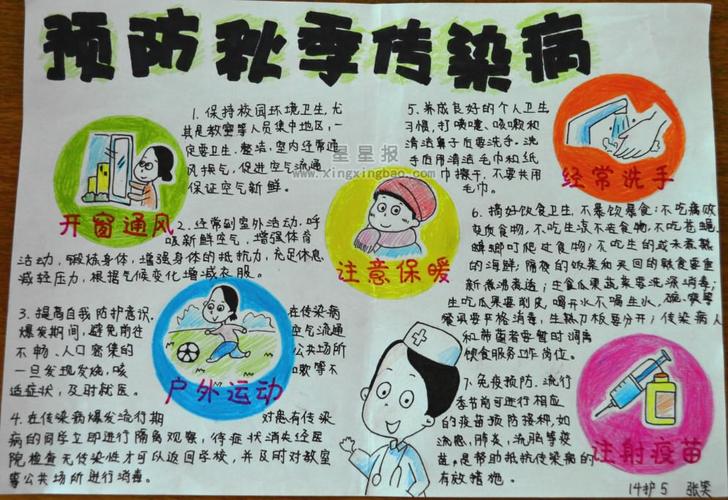 预防秋季传染病
1. 保持校园环境卫生,尤
其是教室等人员集中地区,一
定要卫生、整洁,室内经常通
风换气,促进空气流通
保证空气新鲜。
开窗通风
2. 经常到室外活动,呼
吸新鲜空气,增强体育
活动,锻炼身体,增强身体的抵抗力,充足休息
减轻压力,根据气候变化增减衣服。
3. 提高自我防护意识,在传染病
爆发期间,避免前往空气流通
不畅、人口密集的公共场所
一旦发现发烧,咳嗽等不
适症状,及时就医。
户外运动
4. 在传染病爆发流行期对患有传染
病的同学立即进行隔离观察,待症状消失经医
院检查无传染性才可以返回学校,并及时对教室
等公共场所进行消毒。
星星报
www.xingxingbao.com
注意保暖
5. 养成良好的个人卫生
习惯,打喷嚏、咳嗽和
清洁鼻子后要洗手。洗
手后用清洁毛巾和纸
巾擦干,不要共用
毛巾。
经常洗手
6. 搞好饮食卫生,不暴饮暴食;不吃腐败
变质食物,不吃生凉不洁食物,不吃苍蝇
蟑螂叮爬过食物;不吃生的或未煮熟
的海鲜;隔夜的饭菜和买回的熟食要重
新煮沸高温;生食瓜果蔬菜要洗涤消毒;
生吃瓜果要削皮,喝开水不喝生水,碗、筷等
餐具要严格消毒,生熟刀板要分开;传染病人
和带菌者要暂时调离
饮食服务工作岗位。
7. 免疫预防。流行
季节前可进行相应
的疫苗预防接种,如
流感,肺炎,流脑等疫
苗,是帮助抵抗传染病的
有效措施。
注射疫苗
14护5 张笑